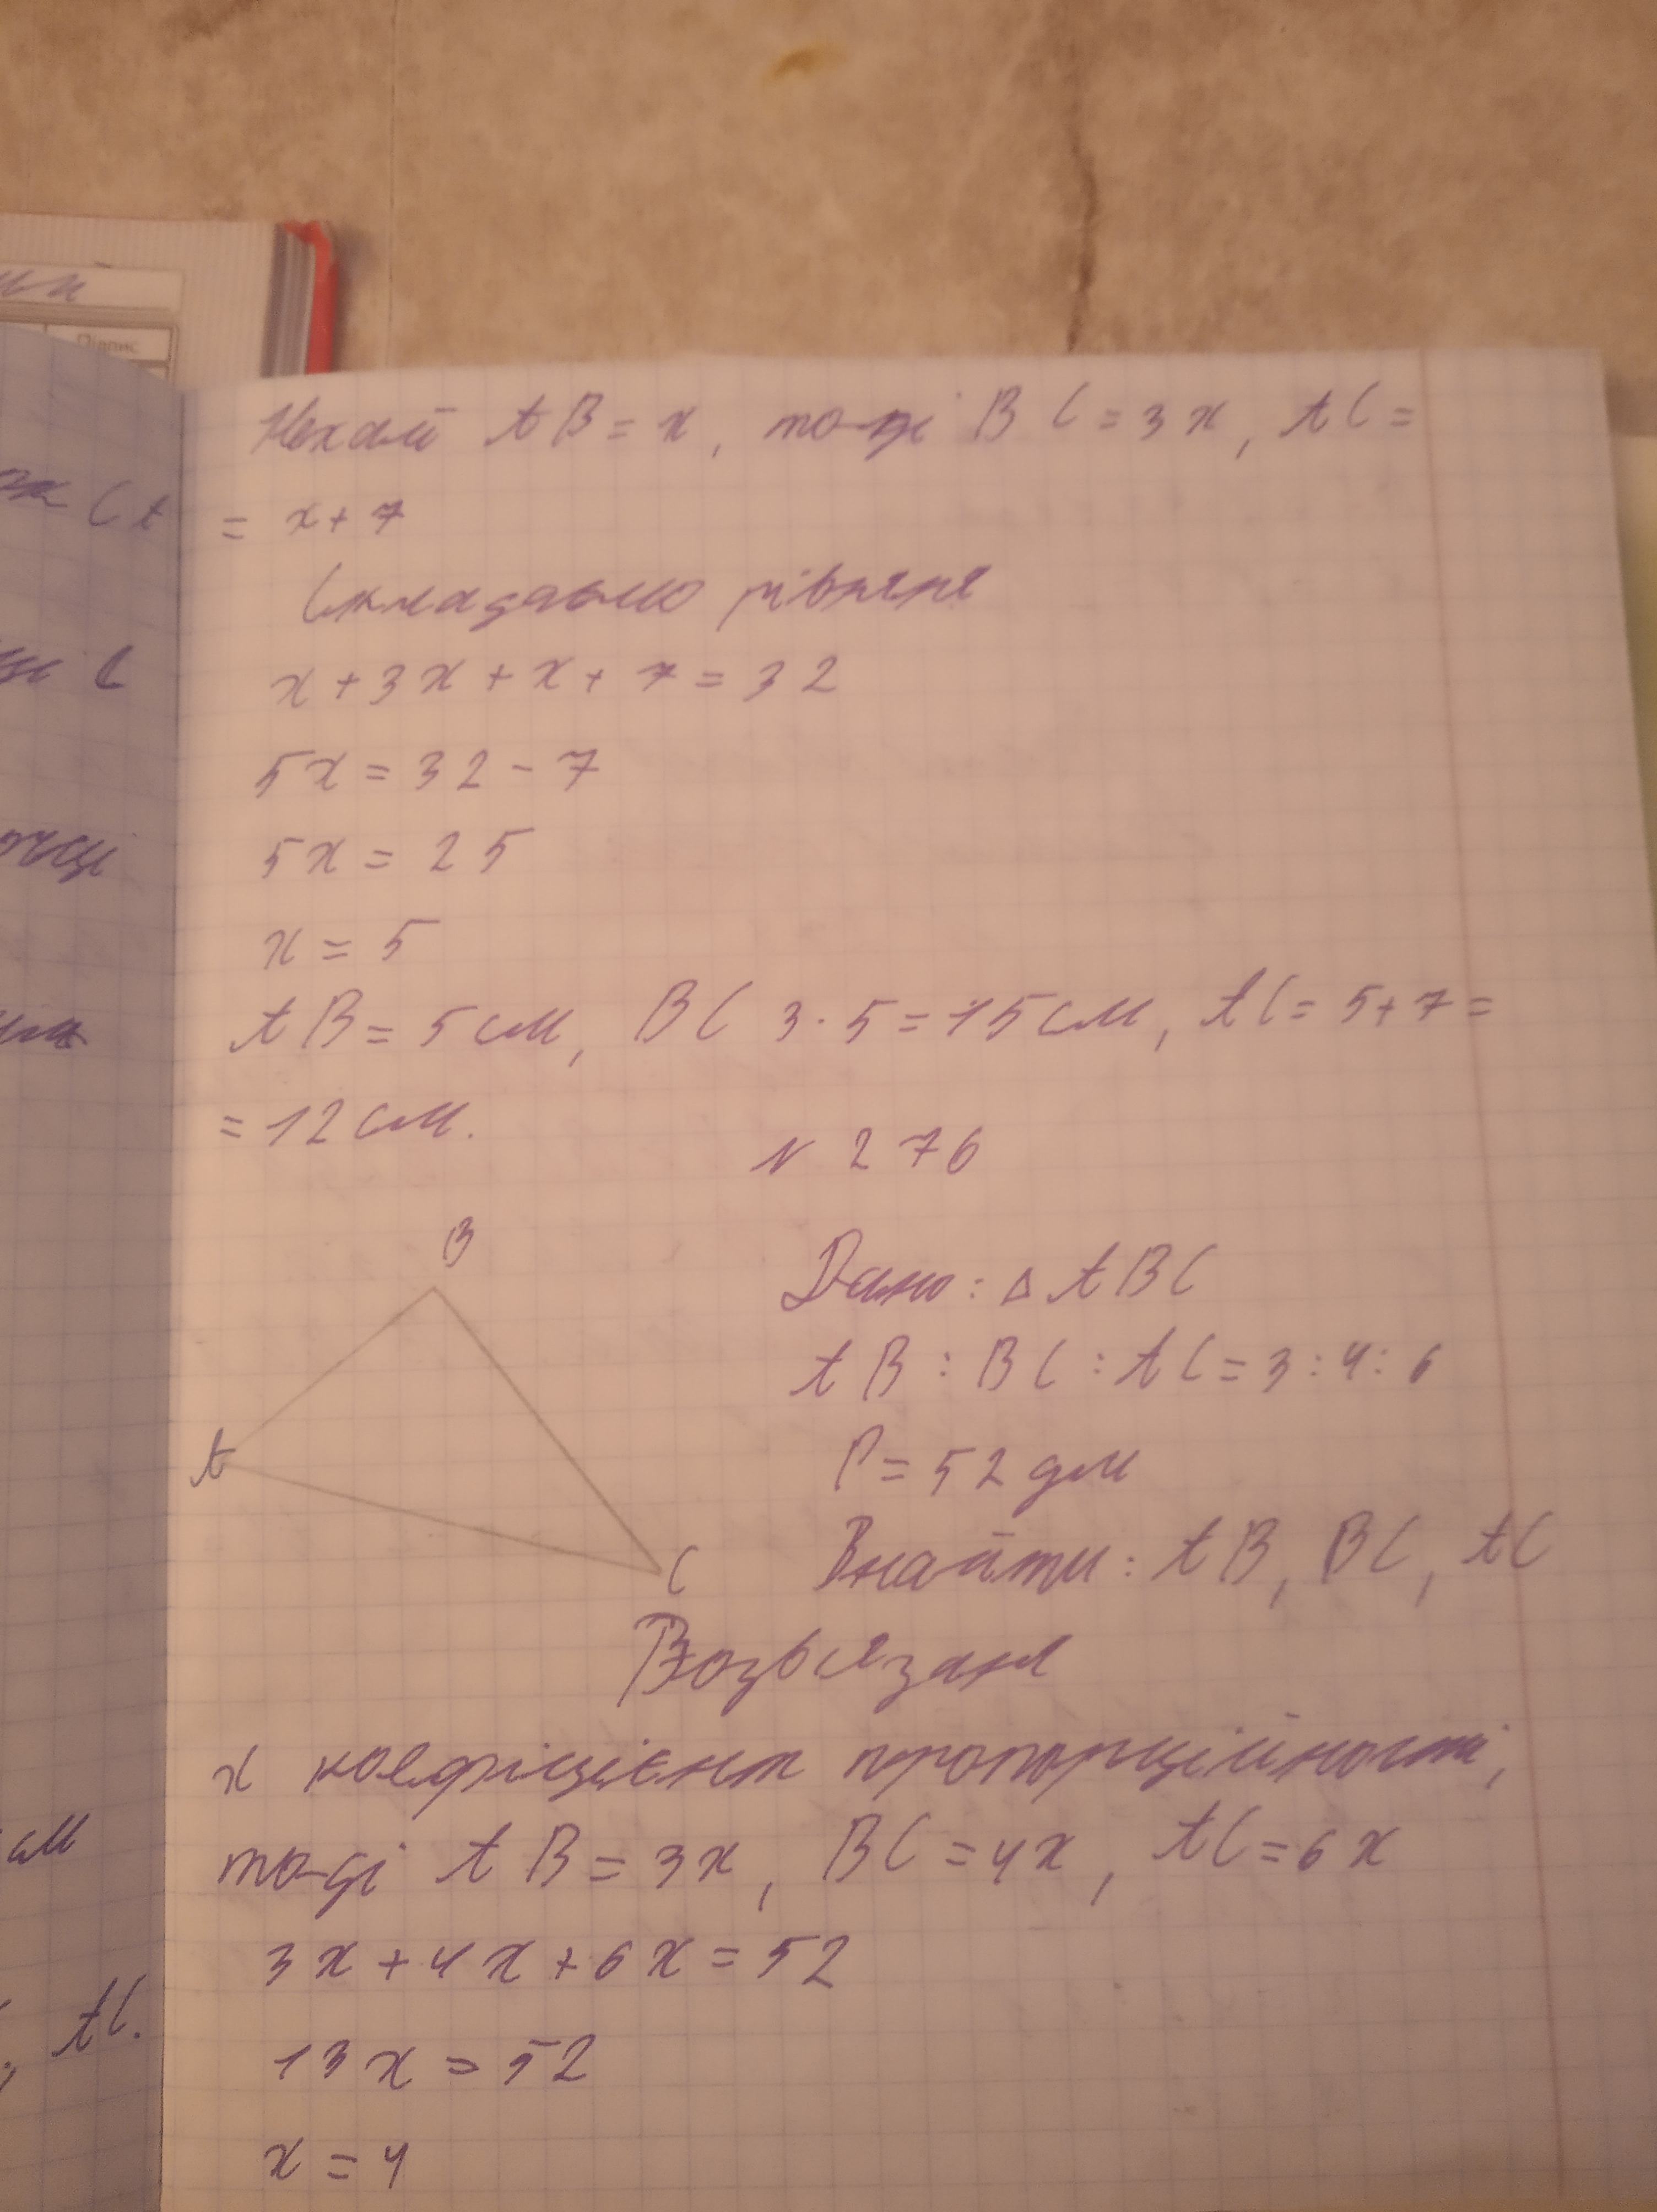 Підпис
Нехай AB = x, тоді BC = 3x, AC =
= x + 7
Складаємо рівняня
x + 3x + x + 7 = 32
5x = 32 - 7
5x = 25
x = 5
AB = 5 см, BC 3 · 5 = 15 см, AC = 5 + 7 =
= 12 см.
N 276
B
A
C
Дано: Δ ABC
AB : BC : AC = 3 : 4 : 6
P = 52 дм
Знайти: AB, BC, AC
x коефіцієнт пропорційності,
тоді AB = 3x, BC = 4x, AC = 6x
3x + 4x + 6x = 52
13x = 52
x = 4
см
AC.